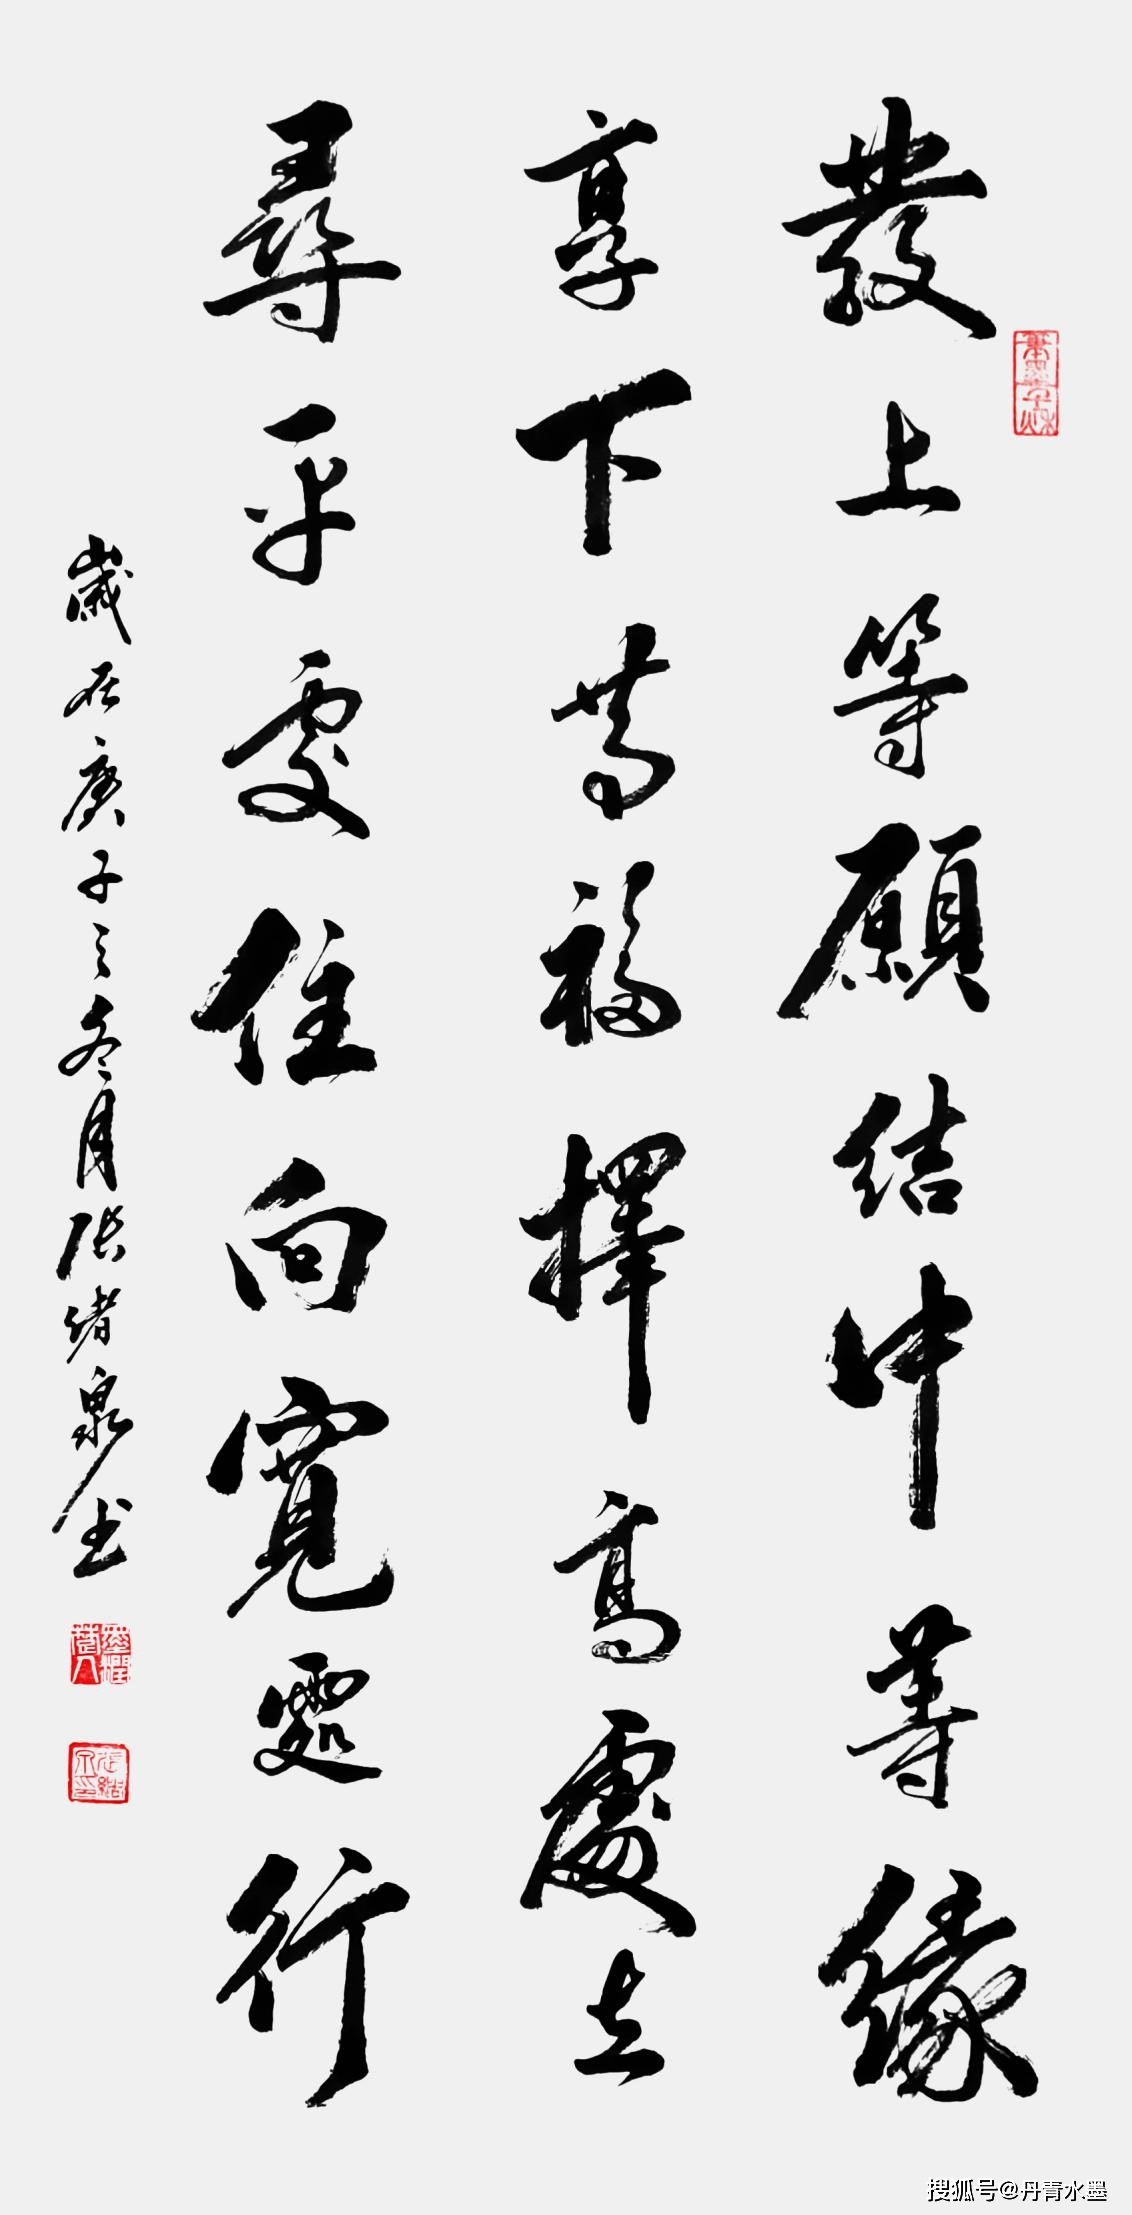 發上等願結中等緣
享下等福擇高處立
尋平處住向寬處行
歲在庚子之冬月張緒泉書
搜狐号@丹青水墨